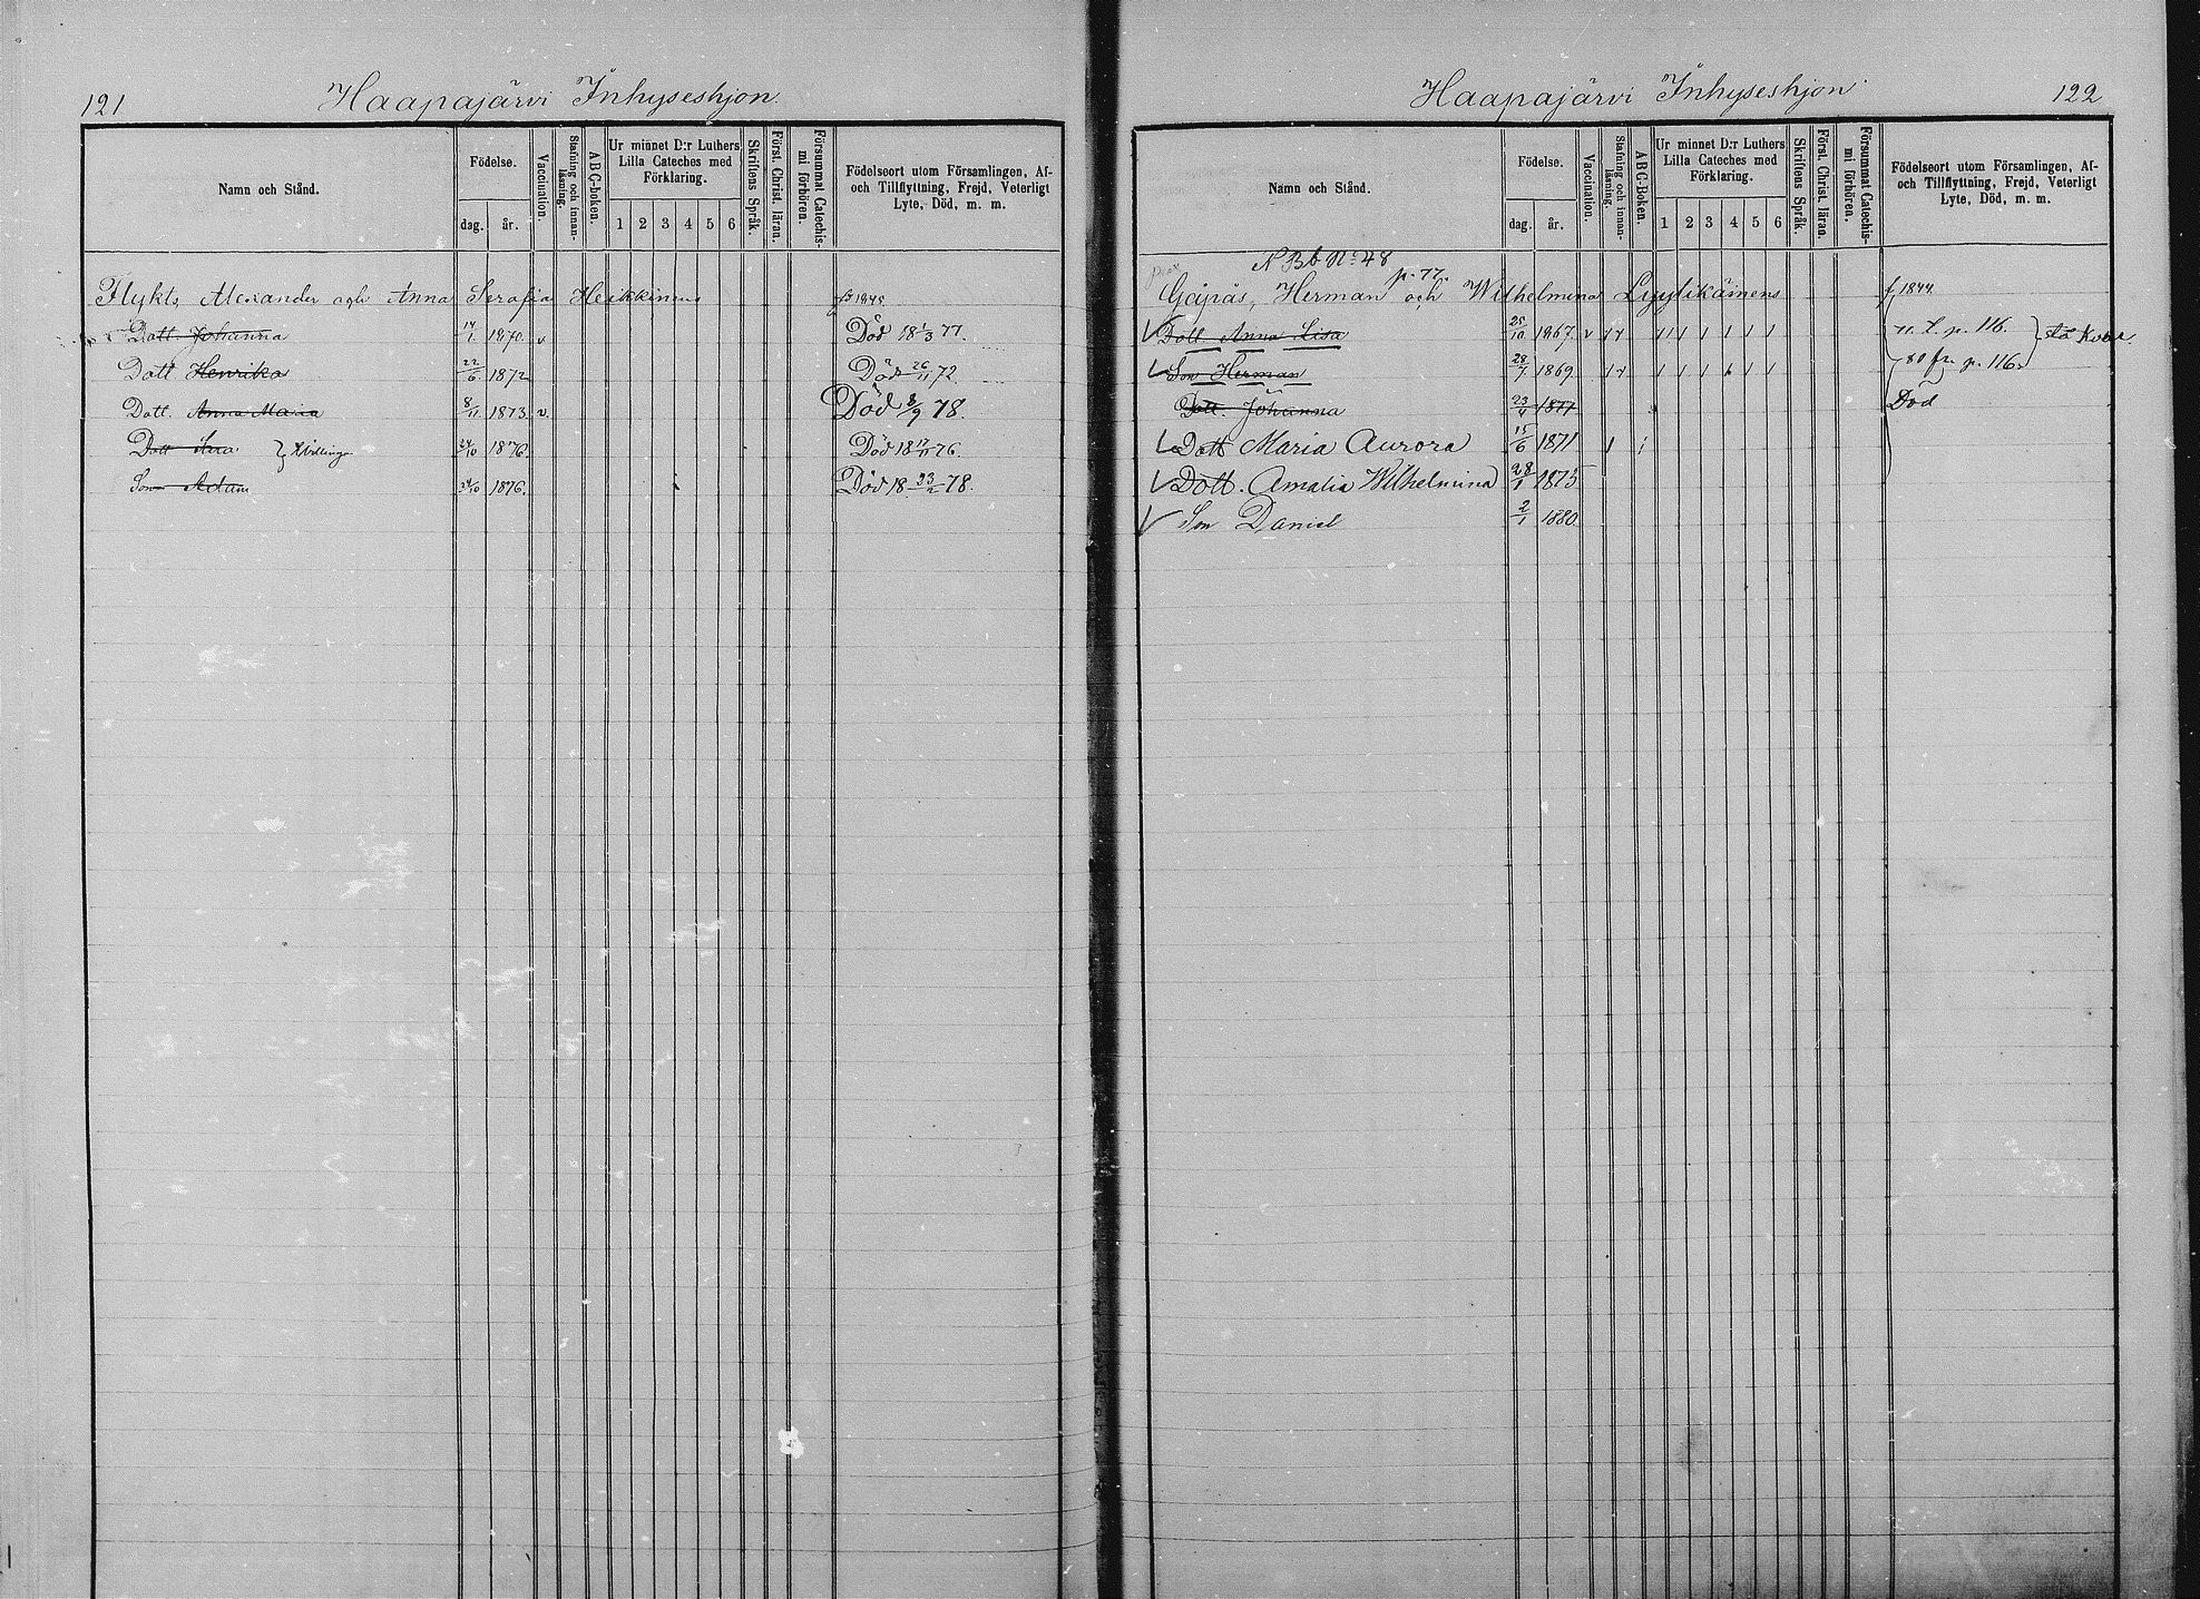 121
Haapajärvi Inhyseshjon.
Namn och Stånd.
Födelse.
dag.
år.
Vaccination.
Stafning och innanläsning.
ABC-boken.
Ur minnet D:r Luthers Lilla Cateches med Förklaring.
1 2 3 4 5 6
Skriftens Språk.
Först. Christ. läran.
Försummat Catechismi förhören.
Födelseort utom Församlingen, Af-
och Tillflyttning, Frejd, Veterligt
Lyte, Död, m. m.
Flykts, Alexander och Anna Serafia Heikkinens f. 1845
Dott. Johanna 14/1 1870. v Död 18 1/3 77.
Dott Henrika 22/6 1872 Död 26/11 72.
Dott. Anna Maria 8/11 1873 v. Död 8/9 78.
Dott 24/10 1876 Död 18 17/11 76.
Tvillingar
Son Adam 24/10 1876. Död 18 23/2 78.
Haapajärvi Inhyseshjon
122
Namn och Stånd.
Födelse.
dag.
år.
Vaccination.
Stafning och innanläsning.
ABC-Boken.
Ur minnet D:r Luthers Lilla Cateches med Förklaring.
1 2 3 4 5 6
Skriftens Språk.
Först. Christ. läran.
Försummat Catechismi förhören.
Födelseort utom Församlingen, Af-
och Tillflyttning, Frejd, Veterligt
Lyte, Död, m. m.
N Bb No 48
p. 77.
Gäpäs, Herman och Wilhelmina Lyytikäinens f. 1844
Dott. Anna Lisa 25/10 1867. v n. t. p. 116.
Son Herman 28/7 1869 80 fr. p. 116.
Dott. Johanna 23/4 1871 Död
Dott Maria Aurora 15/6 1871
Dott. Amalia Wilhelmina 28/1 1873
Son Daniel 2/1 1880